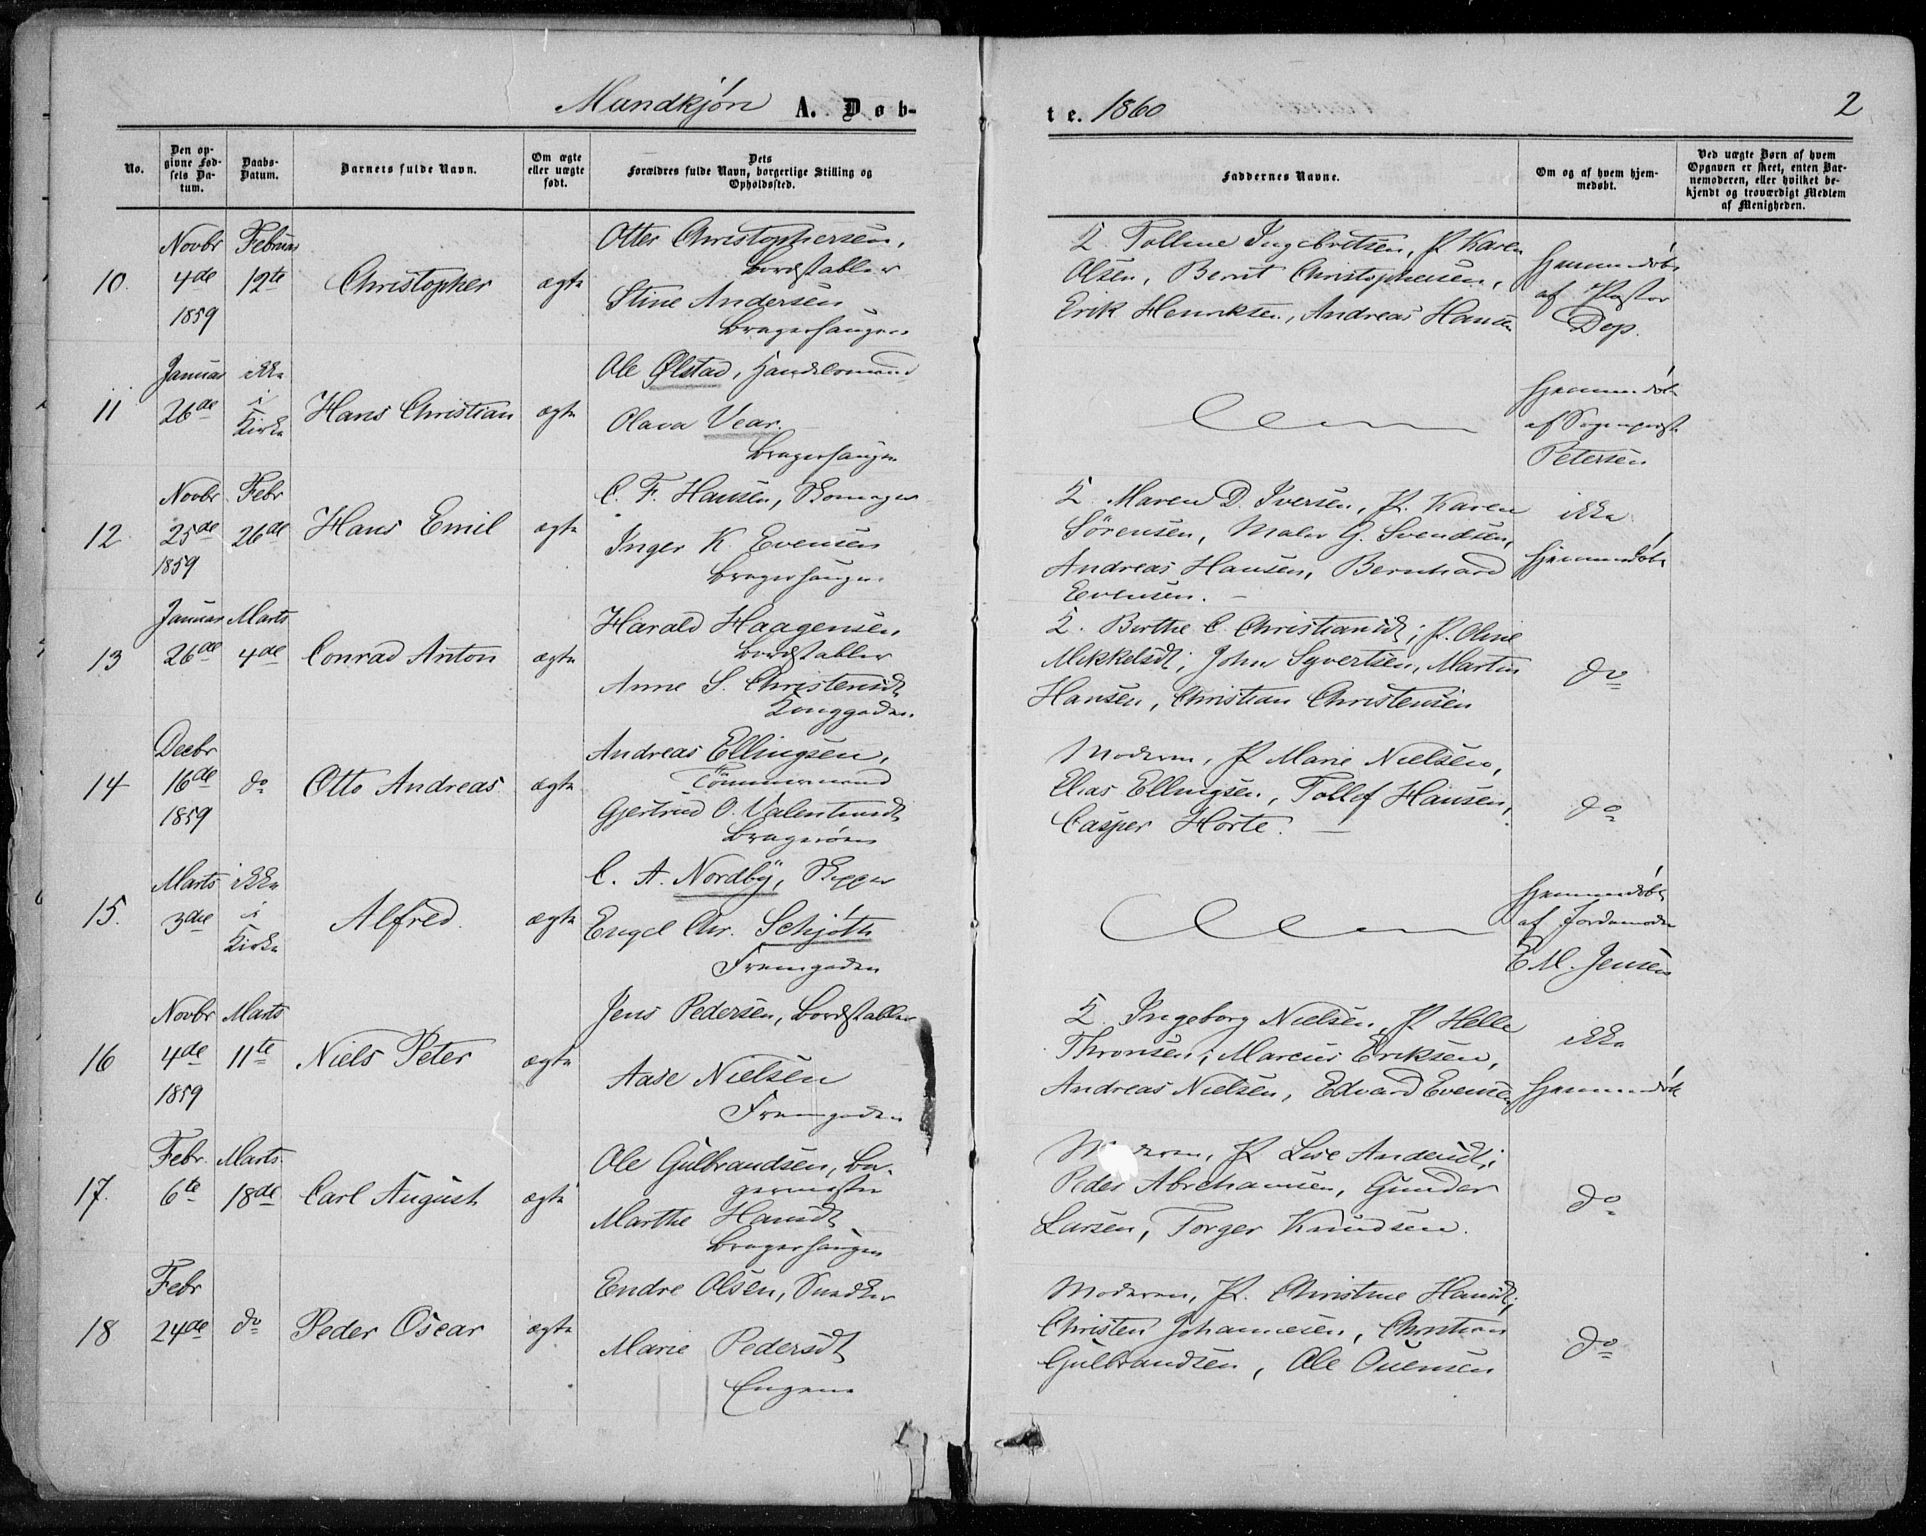 Mandkjøn A. Døb-
te. 1860
2
No.
Den op-
givne Fød-
sels Da-
tum.
Daabs-
Datum.
Barnets fulde Navn.
Om ægte
eller uægte
født.
Dets
Forældres fulde Navn, borgerlige Stilling og
Opholdssted.
Faddernes Navne.
Om og af hvem hjem-
medøbt.
Ved uægte Børn af hvem
Opgaven er skeet, enten Bar-
nemoderen, eller hvilket be-
kjendt og troværdigt Medlem
af Menigheden.
10.
Novbr
4de
1859
Februar
12te
Christopher
ægte
Otter Christophersen,
Bordstabler
Stine Andersen
Bragerhaugen
Tolline Ingebretsen, Jf. Karen
Olsen, Bernt Christophersen,
Erik Henriksen, Andreas Hansen
Hjemmedøbt
af Pastor
Dop.
11
Januar
26de
ikke
i
Kirke
Hans Christian
ægte
Ole Ølstad, Handelsmand
Olava Vear.
Bragerhaugen
Hjemmedøbt
af Sognepræst
Petersen
12.
Novbr
25de
1859
Febr
26de
Hans Emil
ægte
C. F. Hansen, Skomager
Inger K. Evensen
Bragerhaugen
Maren D. Iversen, Jf. Karen
Sørensen, Malen G. Svendsen,
Andreas Hansen, Bernhard
Evensen.
ikke
Hjemmedøbt
13
Januar
26de
Marts
4de
Conrad Anton
ægte
Harald Haagensen
Bordstabler
Anne S. Christensdt
Konggaden
Berthe C. Christiansdt, Jf. Oline
Mikkelsdt, John Syvertsen, Martin
Hansen, Christian Christensen
do
14
Decbr
16de
1859
do
Otto Andreas
ægte
Andreas Ellingsen,
Tömmermand
Gjertrud O. Valentinsdt
Bragerøen
Moderen, Jf. Marie Nielsen,
Elias Ellingsen, Tollef Hansen,
Casper Horte.
do
15.
Marts
3die
ikke
i
Kirke
Alfred.
ægte
C. A. Nordbÿ, Skipper
Engel Chr. Schjøtt
Fremgaden
Hjemmedøbt
af Jordemoder
E M. Jensen
16
Novbr
4de
1859
Marts
11te
Niels Peter
ægte
Jens Pedersen, Bordstabler
Aase Nielsen
Fremgaden
Ingeborg Nielsen, Jf. Helle
Thronsen, Marcus Eriksen,
Andreas Nielsen, Edvard Evensen
ikke
Hjemmedøbt
17.
Febr.
6te
Marts
18de
Carl August
ægte
Ole Gulbrandsen, Ba-
germester
Marthe Hansdt
Bragerhaugen
Moderen, Jf. Lise Andersdt,
Peder Abrahamsen, Gunder
Larsen, Torger Knudsen.
do
18
Febr
24de
do
Peder Oscar
ægte
Endre Olsen, Snedker
Marie Pedersdt
Engene
Moderen, Jf. Christine Hansdt,
Christen Johannesen, Christian
Gulbrandsen, Ole Ouensen
do